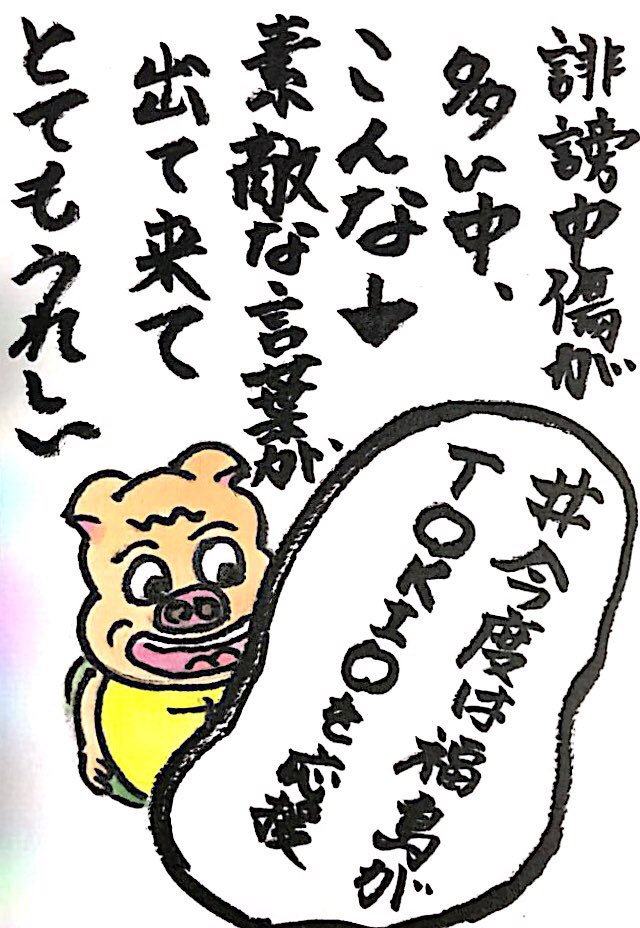 誹謗中傷が
多い中、
こんな↓
素敵な言葉が、
出て来て
とてもうれしい
#今度は福島が
TOKIOを応援